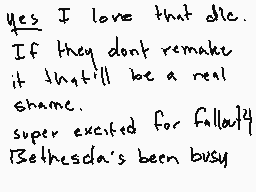 yes I love that dlc.
If they dont remake
it that'll be a real
shame.
super excited for fallout 4
Bethesda's been busy